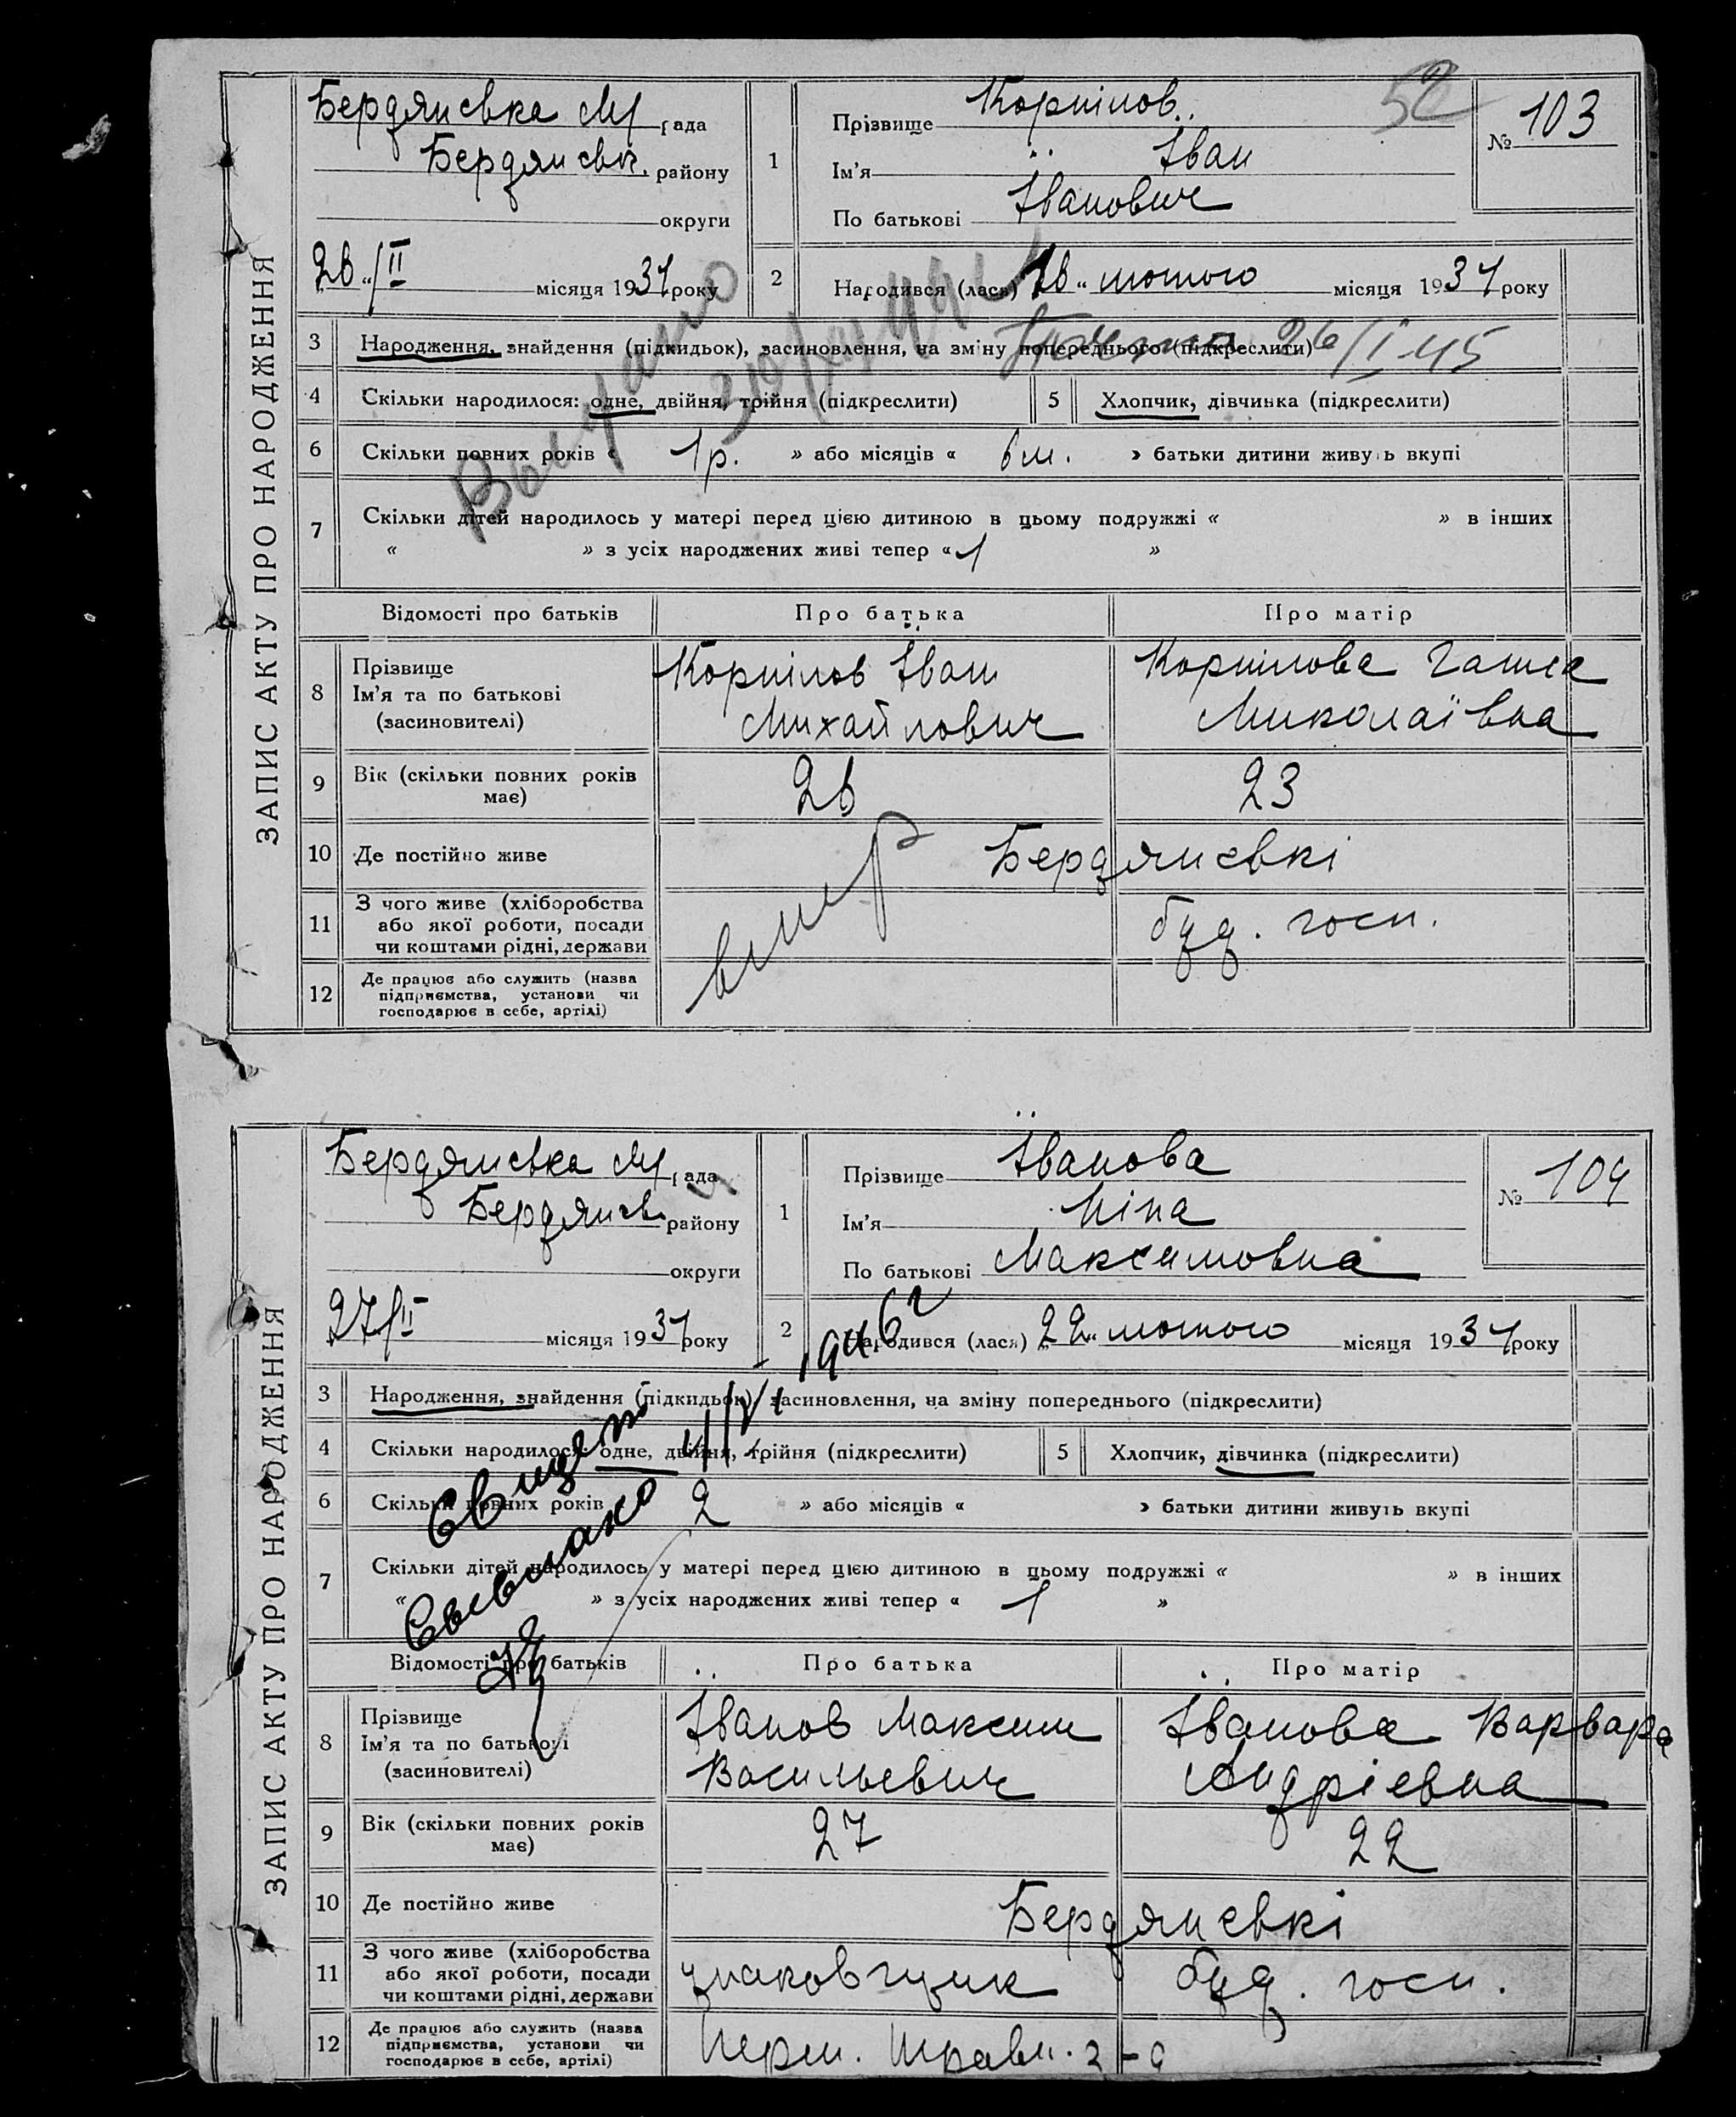 ЗАПИС АКТУ ПРО НАРОДЖЕННЯ
52
№ 103
Бердянська М рада
Бердянськ. району
округи
26 "/II місяця 1934 року
1 Прізвище Корнілов
Ім'я Іван
По батькові Іванович
2 Народився (лася) 16 " лютого місяця 1934 року
3 Народження, знайдення (підкидьок), засиновлення, на зміну попереднього (підкреслити)
26/I 45
4 Скільки народилося: одне, двійня, трійня (підкреслити) 5 Хлопчик, дівчинка (підкреслити)
6 Скільки повних років « 1 р. » або місяців « 6 м. » батьки дитини живуть вкупі
7 Скільки дітей народилось у матері перед цією дитиною в цьому подружжі « » в інших
« » з усіх народжених живі тепер « 1 »
Відомості про батьків Про батька Про матір
8 Прізвище Ім'я та по батькові (засиновителі)
Корнілов Іван
Михайлович
Корнілова
Миколаївна
9 Вік (скільки повних років має) 26 23
10 Де постійно живе Бердянські
11 З чого живе (хліборобства або якої роботи, посади чи коштами рідні, держави буд. госп.
12 Де працює або служить (назва підприємства, установи чи господарює в себе, артілі)
вмер
ЗАПИС АКТУ ПРО НАРОДЖЕННЯ
№ 104
Бердянська М рада
Бердянськ району
округи
27/II місяця 1934 року
1 Прізвище Іванова
Ім'я Ніна
По батькові Максимовна
2 Народився (лася) 22 " лютого місяця 1934 року
3 Народження, знайдення (підкидьок), засиновлення, на зміну попереднього (підкреслити)
4 Скільки народилося: одне, двійня, трійня (підкреслити) 5 Хлопчик, дівчинка (підкреслити)
6 Скільки повних років 2 » або місяців « » батьки дитини живуть вкупі
7 Скільки дітей народилось у матері перед цією дитиною в цьому подружжі « » в інших
« » з усіх народжених живі тепер « 1 »
Відомості про батьків Про батька Про матір
8 Прізвище Ім'я та по батькові (засиновителі)
Іванов Максим
Васильевич
Іванова Варвара
Андріевна
9 Вік (скільки повних років має) 27 22
10 Де постійно живе Бердянські
11 З чого живе (хліборобства або якої роботи, посади чи коштами рідні, держави упаковщик буд. госп.
12 Де працює або служить (назва підприємства, установи чи господарює в себе, артілі) Перш. Травн. з-д